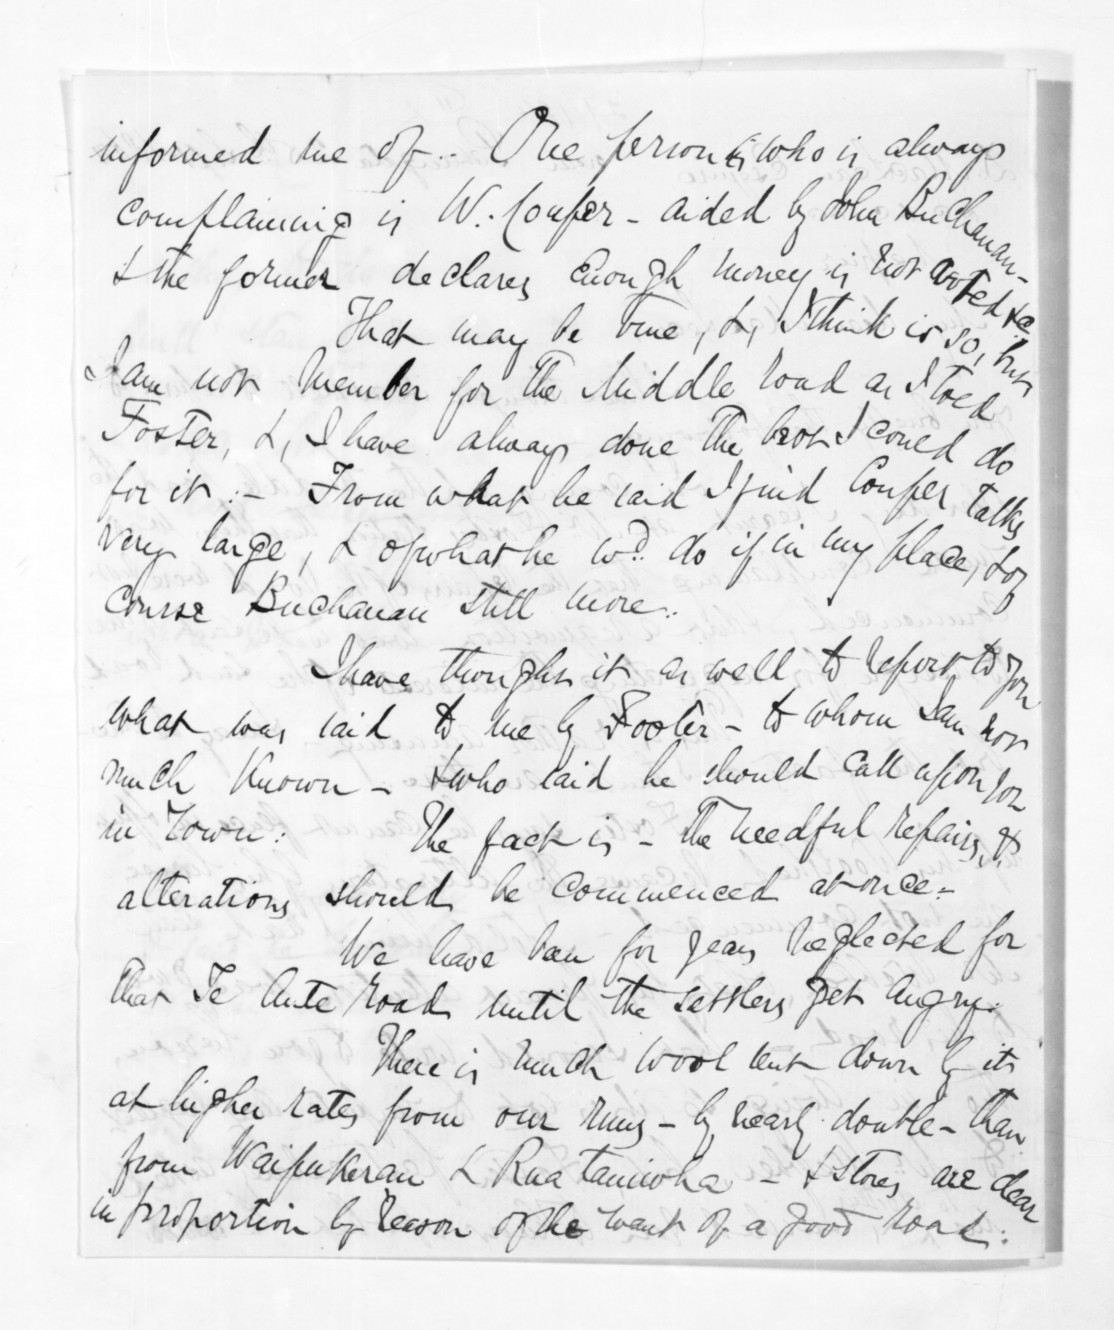 informed me of.. One person is who is always
complaining is W. Couper - aided by John Buchanan -
& the former declares enough money is not voted &c
That may be true, &, I think is so, but
I am not Member for the Middle road as I told
Foster, &, I have always done the best I could do
for it :- From what he said I find Couper talks
very large, & of what he wd. do if in my place, & of
course Buchanan still more.
I have thought it as well to report to you
what was said to me by Foster - to whom I am not
much known - & who said he should call upon you
in Town: The fact is - the needful repairs, &
alterations should be commenced at once -
We have been for years neglected for
that Te Aute road until the settlers get angry.
There is much wool sent down by it
at higher rates from our runs - by nearly double - than
from Waipukurau & Ruataniwha - & stores are dear
in proportion by reason of the want of a good road: